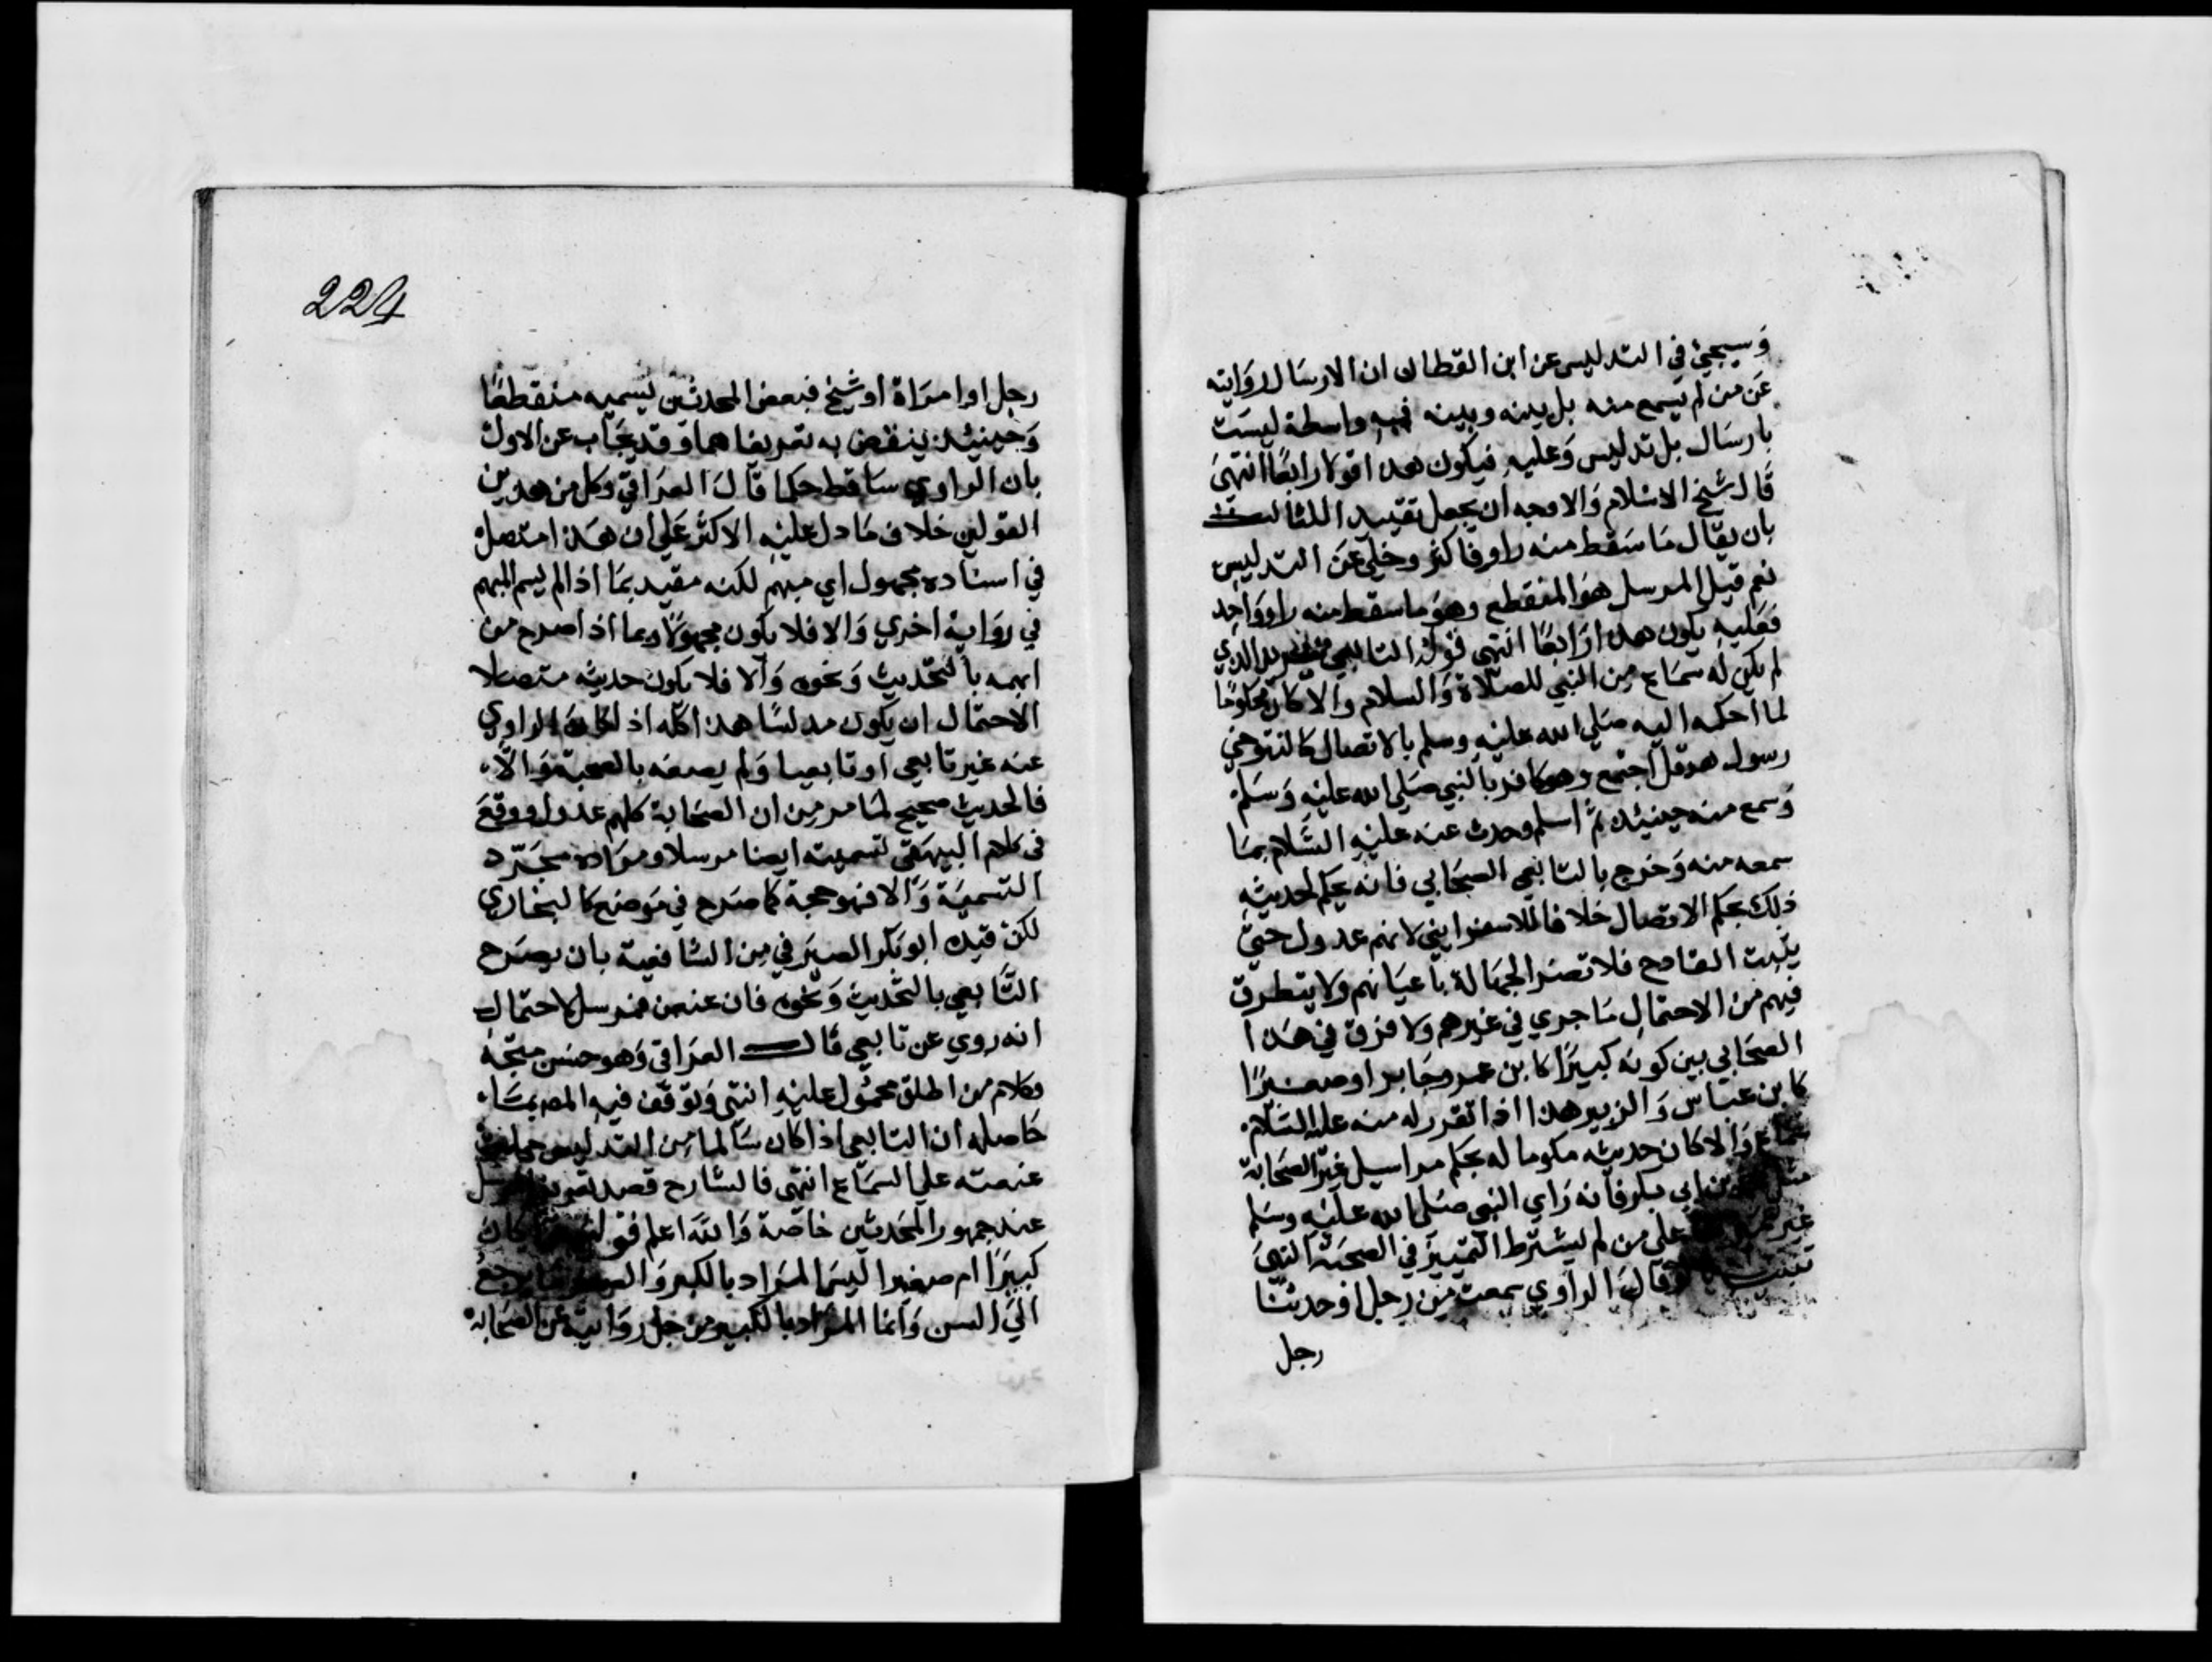 وسيجيئ في التدليس عن ابن القطان ان الارسال روايته
عن من لم يسمع منه بل بينه وبينه فيه واسطة ليست
بارسال بل تدليس وعليه فيكون هذا قولا رابعا انتهى
قال شيخ الاسلام والاوجه ان يجعل تقييدا للثالث
بان يقال ما سقط منه راو فاكثر وخلي عن التدليس
نعم قيل المرسل هو المنقطع وهو ما سقط منه راو واحد
فعليه يكون هذا رابعا انتهى قوله التابعي الذي
لم يكن له سماع من النبي للصلاة والسلام والا كان محكوما
لما احكه اليه صلى الله عليه وسلم بالاتصال كالتنوخي
رسول هرقل اجتمع وهو كافر بالنبي صلى الله عليه وسلم
وسمع منه حينئذ ثم اسلم وحدث عنه عليه السلام بما
سمعه منه وخرج بالتابعي الصحابي فانه يحكم لحديثه
ذلك بحكم الاتصال خلافا للاسفرايني لانهم عدول حتى
يثبت القادح فلا تضر الجهالة باعيانهم ولا يتطرق
فيهم من الاحتمال ما جري في غيرهم ولا فرق في هذا
الصحابي بين كونه كبيرا كابن عمر وجابر او صغيرا
كابن عباس والزبير هذا اذا تقرر له منه عليه السلام
سماع والا كان حديثه مكوما له بحكم مراسيل غير الصحابة
بن ابي بكر فانه راي النبي صلى الله عليه وسلم
غير على من لم يشترط التمييز في الصحبة انتهى
وقال الراوي سمعت من رجل او حدثنا
رجل
224
رجل او امراة او شيخ فبعض المحدثين يسميه منقطعا
وحينئذ ينقض به تعريفا هما وقد يجاب عن الاول
بان الراوي ساقط حكما قال العراقي وكل من هذين
القولين خلاف ما دل عليه الاكثر على ان هذا متصل
في اسناده مجهول اي مبهم لكنه مقيد بما اذا لم يسم المبهم
في رواية اخري والا فلا يكون مجهولا وبما اذا صرح من
ابهمه بالتحديث ونحوه والا فلا يكون حديثه متصلا
الاحتمال ان يكون مدلسا هذا كله اذا كان الراوي
عنه غير تابعي او تابعيا ولم يصفه بالصحبة والا
فالحديث صحيح لما مر من ان الصحابة كلهم عدول ووقع
في كلام البيهقي تسميته ايضا مرسلا ومراده مجرد
التسمية والا فهو حجة كما صرح في موضع كالبخاري
لكن قيده ابو بكر الصيرفي من الشافعية بان يصرح
التابعي بالتحديث ونحوه فان عنعن فمرسل لاحتمال
انه روي عن تابعي قال العراقي وهو حسن متجه
وكلام من اطلق محمول عليه انتهى وتوقف فيه المص بمثا
حاصله ان التابعي اذا كان سالما من التدليس حملت
عنعنته على السماع انتهى فالشارح قصد
عند جمهور المحدثين خاصة والله اعلم كان
كبيرا ام صغيرا ليس المراد بالكبر يرجع
الي السن وانما المراد بالكبير من جل روايته عن الصحابة